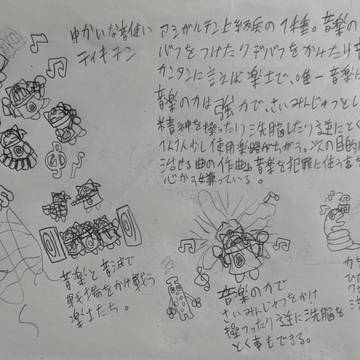 ゆかいな音使い
ティキテン
アシガルテン上級兵の1種。音楽の
バフをつけたりデバフをかけたり音
カンタンに言えば楽士で、唯一音楽
音楽の力は強力で、さいみんじゅつとし
精神を操ったり洗脳したり逆にとく
1人1人少し使用楽器がちがう。次の目的は
治せる曲の作曲。音楽を犯罪に使う事を
心から嫌っている。
音楽と音波で
戦場をかけ戦う
楽士たち。
音楽の力で
さいみんじゅつをかけ
操ったり逆に洗脳を
とく事もできる。